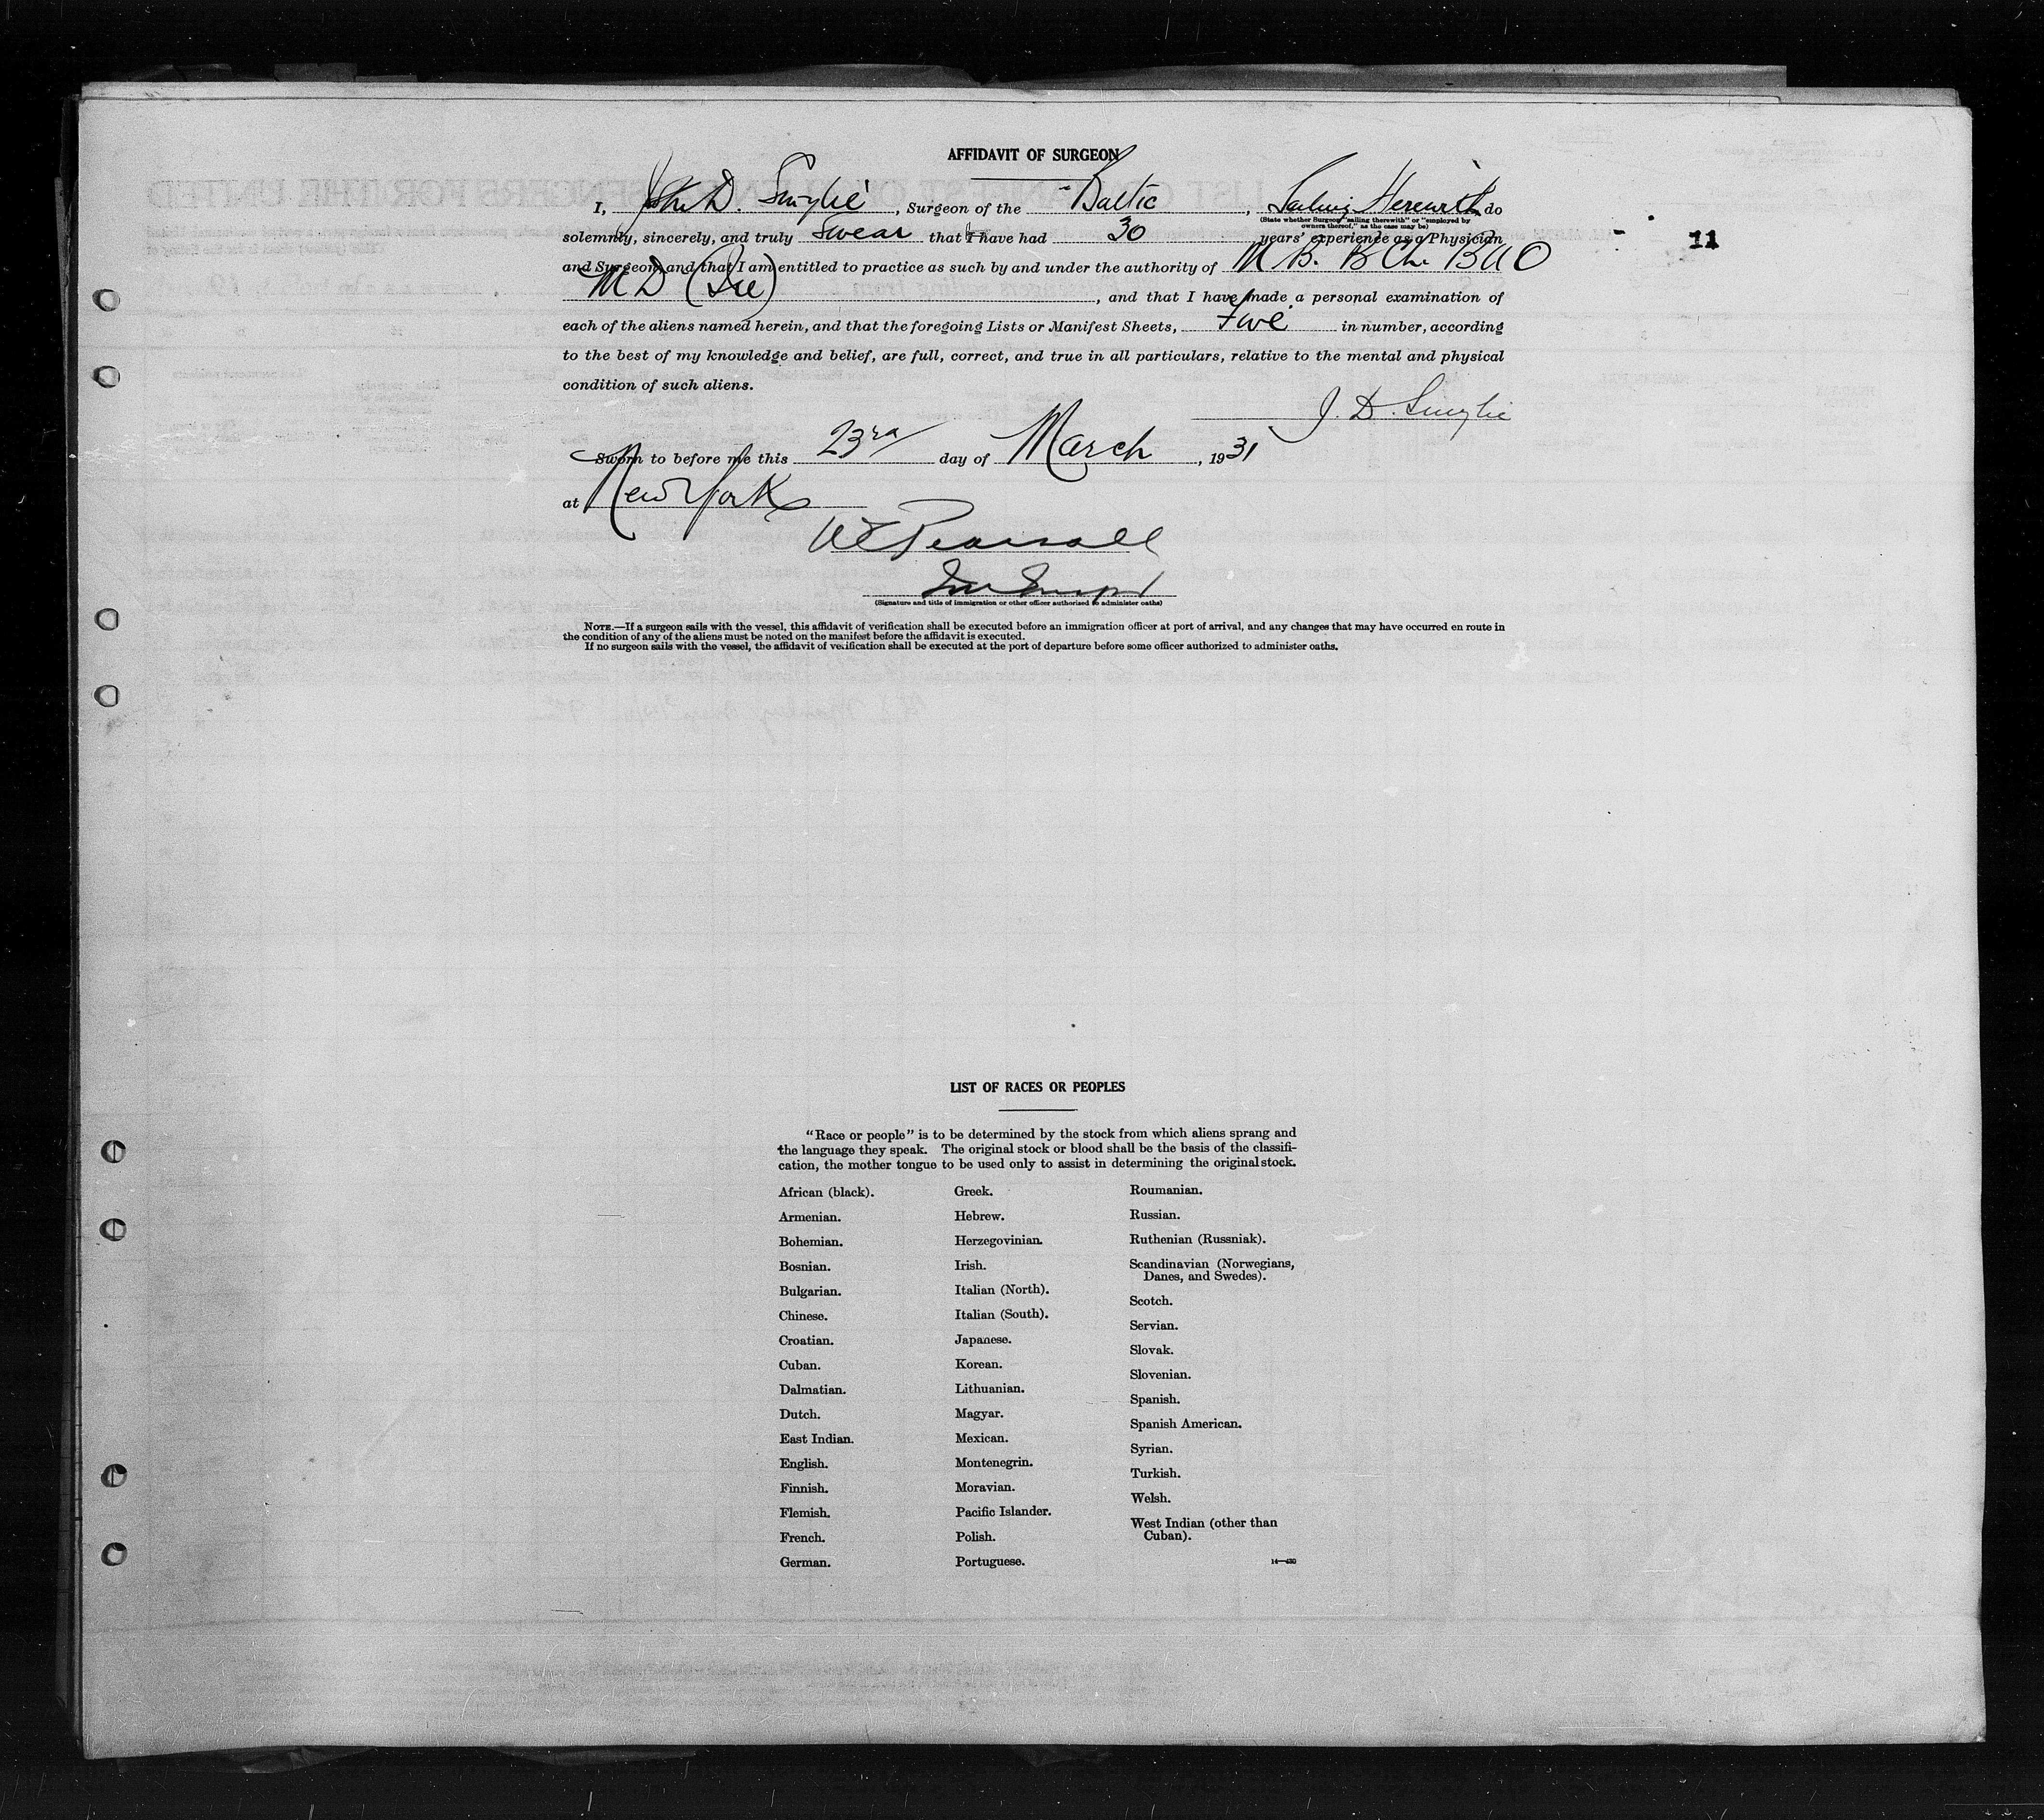 AFFIDAVIT OF SURGEON
I, John D. Smylie, Surgeon of the Baltic, Sailing Herewith do
(State whether Surgeon "sailing therewith" or "employed by
owners thereof," as the case may be)
solemnly, sincerely, and truly Swear that I have had 30 years' experience as a Physician
11
and Surgeon, and that I am entitled to practice as such by and under the authority of M B. B Ch. BAO
M D (Ire), and that I have made a personal examination of
each of the aliens named herein, and that the foregoing Lists or Manifest Sheets, Five in number, according
to the best of my knowledge and belief, are full, correct, and true in all particulars, relative to the mental and physical
condition of such aliens.
J. D. Smylie
Sworn to before me this 23rd day of March, 1931
at New York
W E Pearsall
(Signature and title of immigration or other officer authorized to administer oaths)
NOTE.—If a surgeon sails with the vessel, this affidavit of verification shall be executed before an immigration officer at port of arrival, and any changes that may have occurred en route in
the condition of any of the aliens must be noted on the manifest before the affidavit is executed.
If no surgeon sails with the vessel, the affidavit of verification shall be executed at the port of departure before some officer authorized to administer oaths.
LIST OF RACES OR PEOPLES
"Race or people" is to be determined by the stock from which aliens sprang and
the language they speak. The original stock or blood shall be the basis of the classifi-
cation, the mother tongue to be used only to assist in determining the original stock.
African (black).
Armenian.
Bohemian.
Bosnian.
Bulgarian.
Chinese.
Croatian.
Cuban.
Dalmatian.
Dutch.
East Indian.
English.
Finnish.
Flemish.
French.
German.
Greek.
Hebrew.
Herzegovinian.
Irish.
Italian (North).
Italian (South).
Japanese.
Korean.
Lithuanian.
Magyar.
Mexican.
Montenegrin.
Moravian.
Pacific Islander.
Polish.
Portuguese.
Roumanian.
Russian.
Ruthenian (Russniak).
Scandinavian (Norwegians,
Danes, and Swedes).
Scotch.
Servian.
Slovak.
Slovenian.
Spanish.
Spanish American.
Syrian.
Turkish.
Welsh.
West Indian (other than
Cuban).